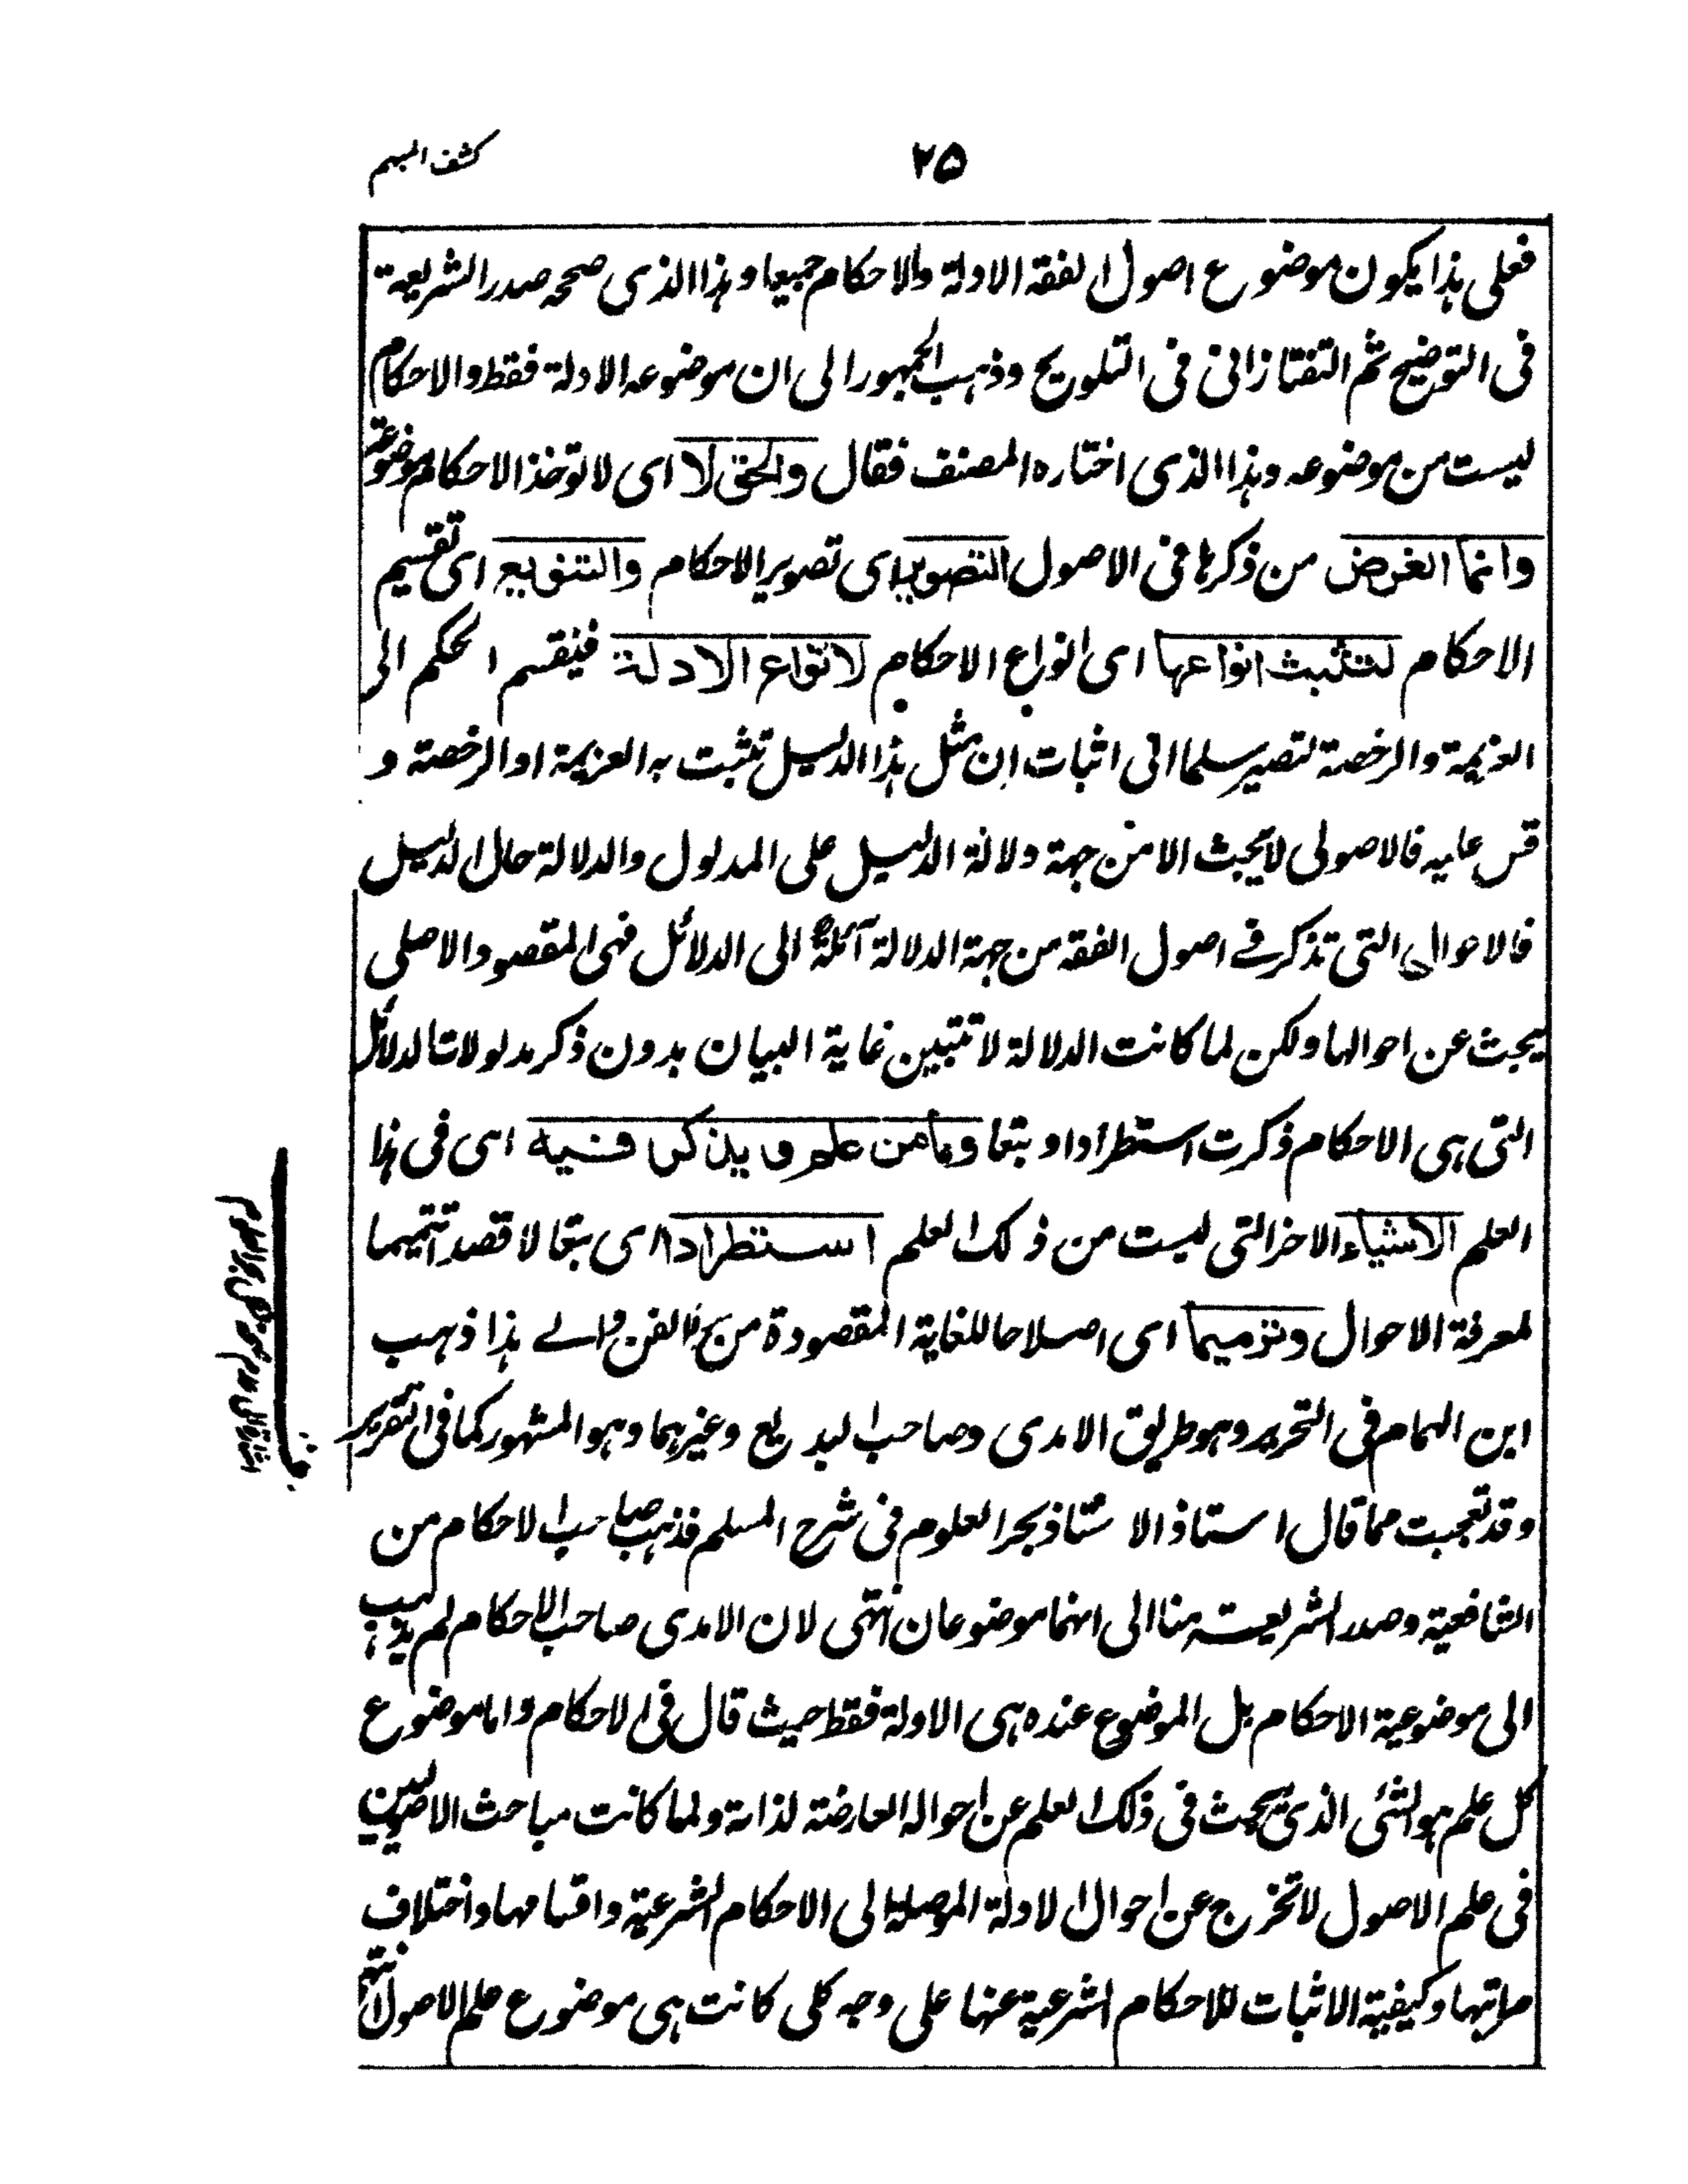 كشف المبهم
٢٥
فعلى هذا يكون موضوع اصول الفقة الادلة والاحكام جميعا وهذا الذى صححه صدر الشريعة
فى التوضيح ثم التفتازانى فى التلويح وذهب الجمهور الى ان موضوعه الادلة فقط والاحكام
ليست من موضوعه وهذا الذى اختاره المصنف فقال والحق لا اى لا توخذ الاحكام موضوعة
وانما الغرض من ذكرها فى الاصول التصوير اى تصوير الاحكام والتنويع اى تقسيم
الاحكام لتثبت انواعها اى انواع الاحكام لانواع الادلة فينقسم الحكم الى
العزيمة والرخصة لتصير سلما الى اثبات ان مثل هذا الدليل تثبت به العزيمة او الرخصة و
قس عليه فالاصولى لا يبحث الا من جهة دلالة الدليل على المدلول والدلالة حال الدليل
فالاحوال التى تذكر فے اصول الفقه من جهة الدلالة آئلة الى الدلائل فهى المقصود الاصلى
يبحث عن احوالها ولكن لما كانت الدلالة لا تتبين غاية البيان بدون ذكر مدلولات الدلائل
التى هى الاحكام ذكرت استطرادا و تبعا وما من علم و يذكر فيه اى فى هذا
العلم الاشياء الاخر التى ليست من ذلك العلم استطرادا اى تبعا لا قصد تتميما
لمعرفة الاحوال وترميما اى اصلاحا للغاية المقصودة من الفن والے هذا ذهب
ابن الهمام فى التحرير وهو طريق الامدى وصاحب البديع وغيرهما وهو المشهور كما فى التقرير
وقد تعجبت مما قال استاذ الاستاذ بحر العلوم فى شرح المسلم فذهب صاحب الاحكام من
الشافعية وصدر الشريعة منا الى انهما موضوعان انتهى لان الامدى صاحب الاحكام لم يذهب
الى موضوعية الاحكام بل الموضوع عنده هى الادلة فقط حيث قال فى الاحكام واما موضوع
كل علم هو الشئى الذى يبحث فى ذلك العلم عن احواله العارضة لذاته ولما كانت مباحث الاصوليين
فى علم الاصول لا تخرج عن احوال الادلة الموصلة الى الاحكام الشرعية واقسامها واختلاف
مراتبها وكيفية الاثبات للاحكام الشرعية عنها على وجه كلى كانت هى موضوع علم الاصول انتهى